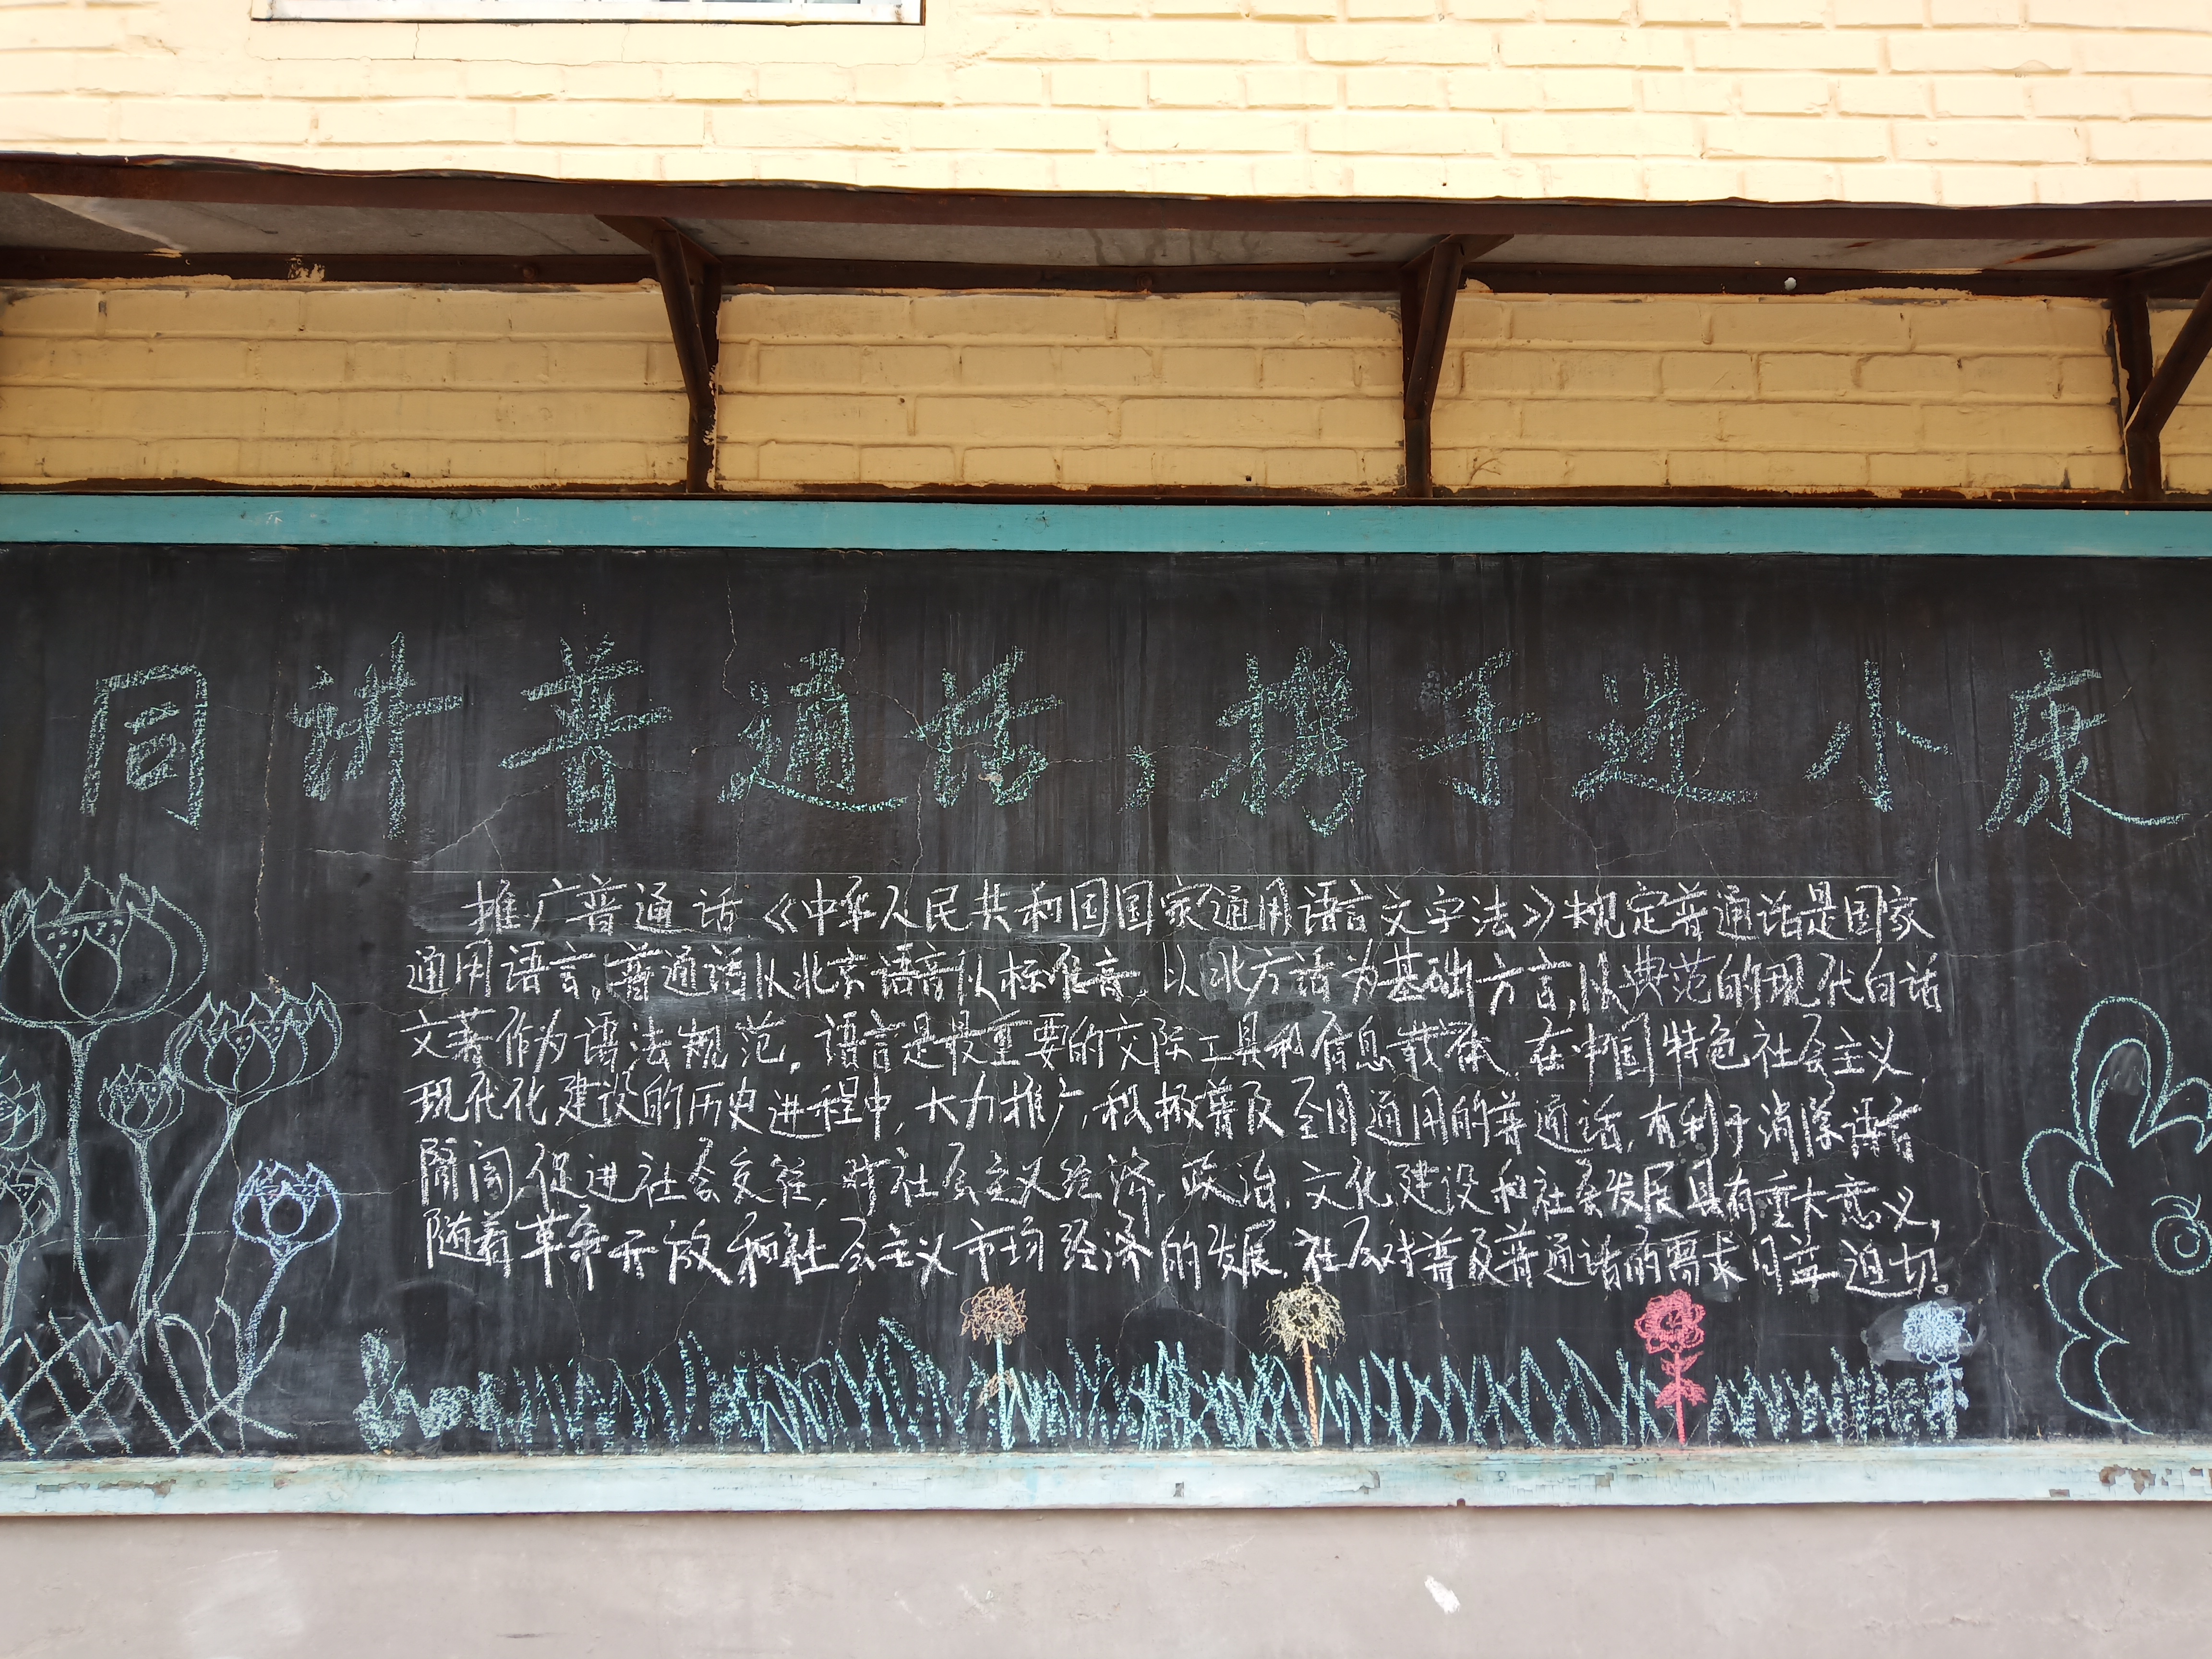 同讲普通话,携手进小康
推广普通话《中华人民共和国国家通用语言文字法》规定普通话是国家
通用语言。普通话以北京语音以标准音,以北方话为基础方言,以典范的现代白话
文著作为语法规范。语言是最重要的交际工具和信息载体。在中国特色社会主义
现代化建设的历史进程中,大力推广,积极普及全国通用的普通话,有利于消除语言
隔阂促进社会交往,对社会主义经济,政治,文化建设和社会发展具有重大意义,
随着革命开放和社会主义市场经济的发展,社会对普及普通话的需求日益迫切。